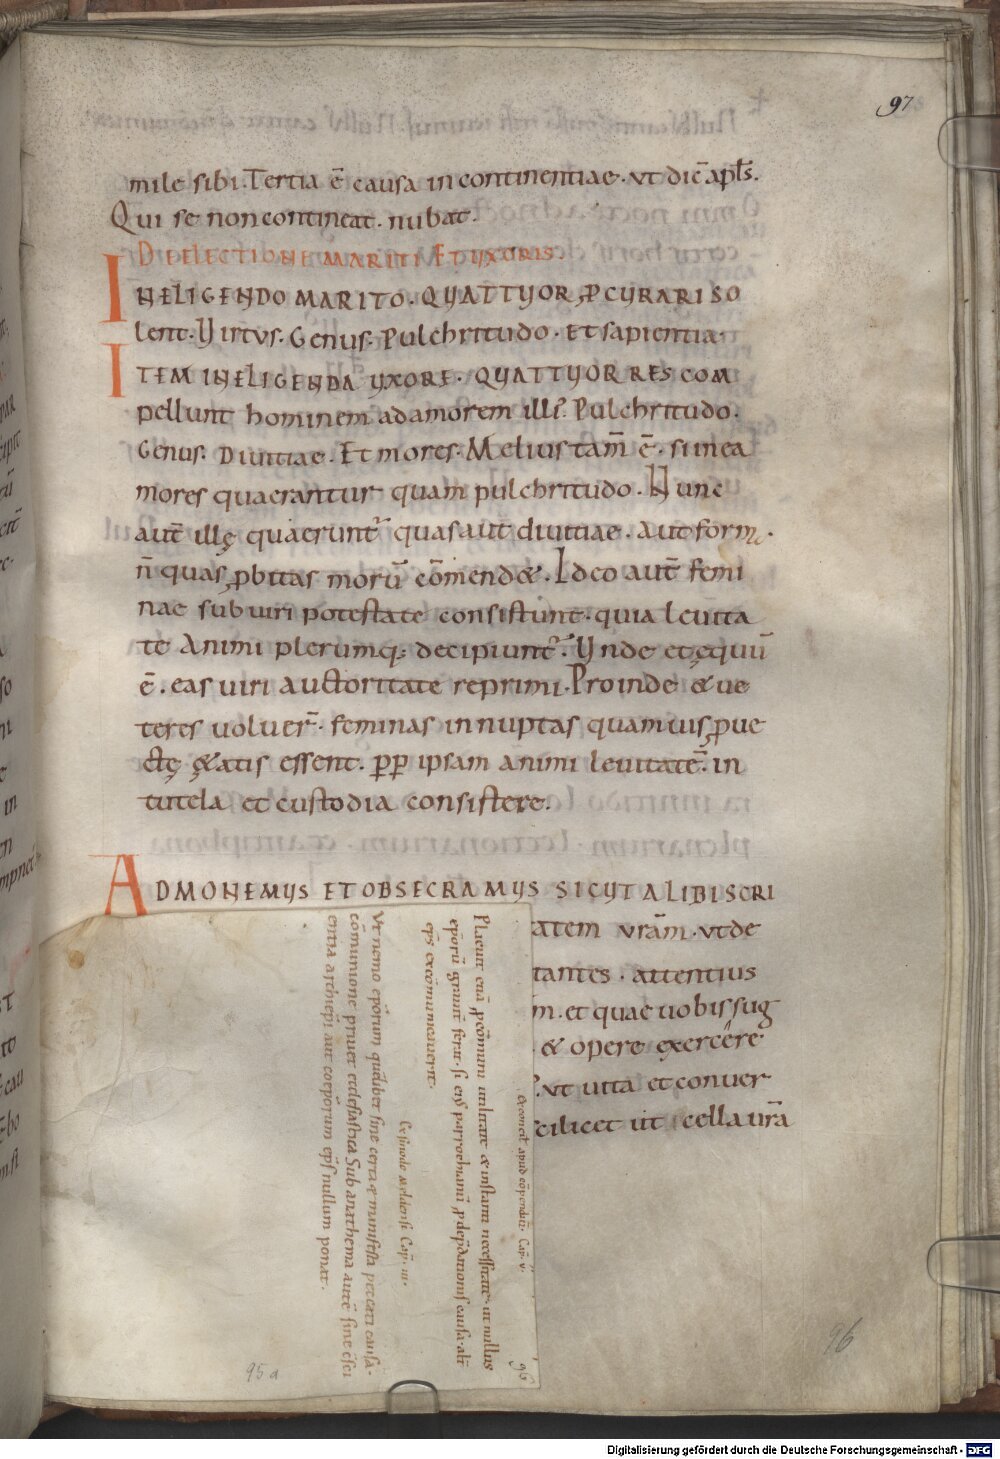 97
mile sibi. Tertia ē causa incontinentiae. vt dic̄ apl̄s.
Qui se noncontineat. nubat.
DE ELECTIONE MARITI ET VXORIS.
IN ELIGENDO MARITO. QVATTVOR P CVRARI SO
lent. Virtvs. Genus. Pulchritudo. Et sapientia.
ITEM IN ELIGENDA VXORE. QVATTVOR RES COM
pellunt hominem adamorem illi'. Pulchritudo.
Genus. Diuitiae. Et mores. Melius tam̄ ē. si in ea
mores quaerantur quam pulchritudo. Nunc
aut̄ illę quaerunt' quas aut diuitiae. Aut form.
n̄ quas ꝓbitas morū cōmend&. Ideo aut̄ femi
nae sub uiri potestate consistunt. quia leuita
te Animi plerumq; decipiunt'. Vnde et ęquū
ē. eas uiri auctoritate reprimi. Proinde & ue
teres uoluer̄. feminas innuptas quamuis ꝓue
ctę ętatis essent. ꝓp ipsam animi leuitatē. in
tutela et custodia consistere.
ADMONEMVS ET OBSECRAMVS SICVT ALIBI SCRI
atem vrām. vt de
tantes. attentius
m. et quae uobis sug
& opere exercēre
vt uita et conuer
cilicet ut cella urā
& concil̄ apud cōpendiū. Cap̄. v.
Placuit etiā ꝓ cōmuni utilitate & instanti necessitate. ut nullus
ep̄orū grauit̄ ferat. si eius parrochianū ꝓ dep̄dationis causa alt̄
ep̄s excōmunicauerit.
Ex sinodo Meldensi Cap̄. iii.
Vt nemo ep̄orum quēlibet sine certa & manifesta peccati causa.
cōmunione priuet ecclesiastica Sub anathema autē sine c̄sci
entia archiep̄i aut coep̄orum ep̄s nullum ponat.
96
95a
96
Digitalisierung gefördert durch die Deutsche Forschungsgemeinschaft - DFG